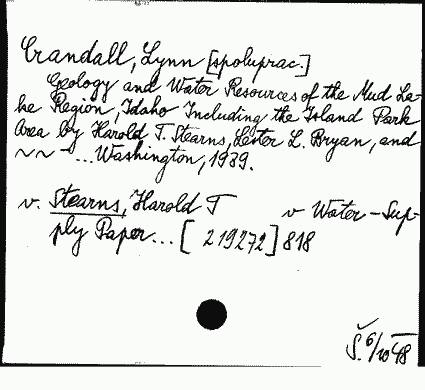 Crandall, Lynn [spoluprac.]
Geology and Water Resources of the Mud La-
ke Region, Idaho Including the Island Park
Area by Harold T. Stearns, Lester L. Bryan, and
~~-...Washington, 1939.
v. Stearns, Harold T v Water-Sup-
ply Paper... [219272] 818
Š. 6/10 48